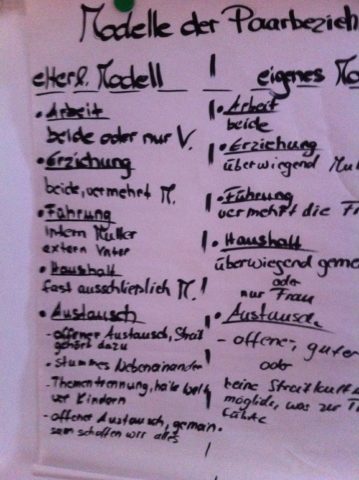 Modelle der Paarbezieh
elterl. Modell
• Arbeit
beide oder nur V.
• Erziehung
beide, vermehrt M.
• Führung
intern Mutter
extern Vater
• Haushalt
fast ausschließlich M.
• Austausch
- offener Austausch, Streit
gehört dazu
• stummes Nebeneinander
- Thementrennung, heile Welt
vor Kindern
- offener Austausch, gemein-
sam schaffen wir alles
eigenes Mo
• Arbeit
beide
• Erziehung
überwiegend Mu
• Führung
vermehrt die F
• Haushalt
überwiegend geme
oder
nur Frau
• Austausch
- offener, guter
oder
keine Streitkult
möglich, was zur T
führt